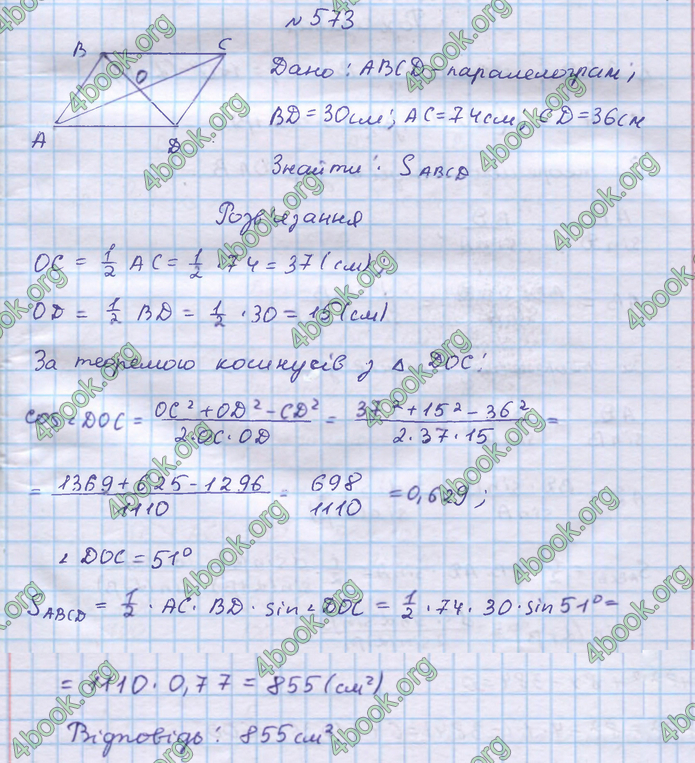 № 573
B C
O
A D
Дано: ABCD - паралелограм;
BD = 30см; AC = 74см, CD = 36см
Знайти: S ABCD
Розв'язання
OC = 1/2 AC = 1/2 · 74 = 37 (см);
OD = 1/2 BD = 1/2 · 30 = 15 (см)
За теоремою косинусів з △ DOC:
cos∠DOC = (OC² + OD² - CD²)/(2·OC·OD) = (37² + 15² - 36²)/(2·37·15) =
= (1369 + 625 - 1296)/1110 = 698/1110 = 0,629;
∠DOC = 51°
S ABCD = 1/2 · AC · BD · sin∠DOC = 1/2 · 74 · 30 · sin 51° =
= 1110 · 0,77 = 855 (см²)
Відповідь: 855 см².
4book.org